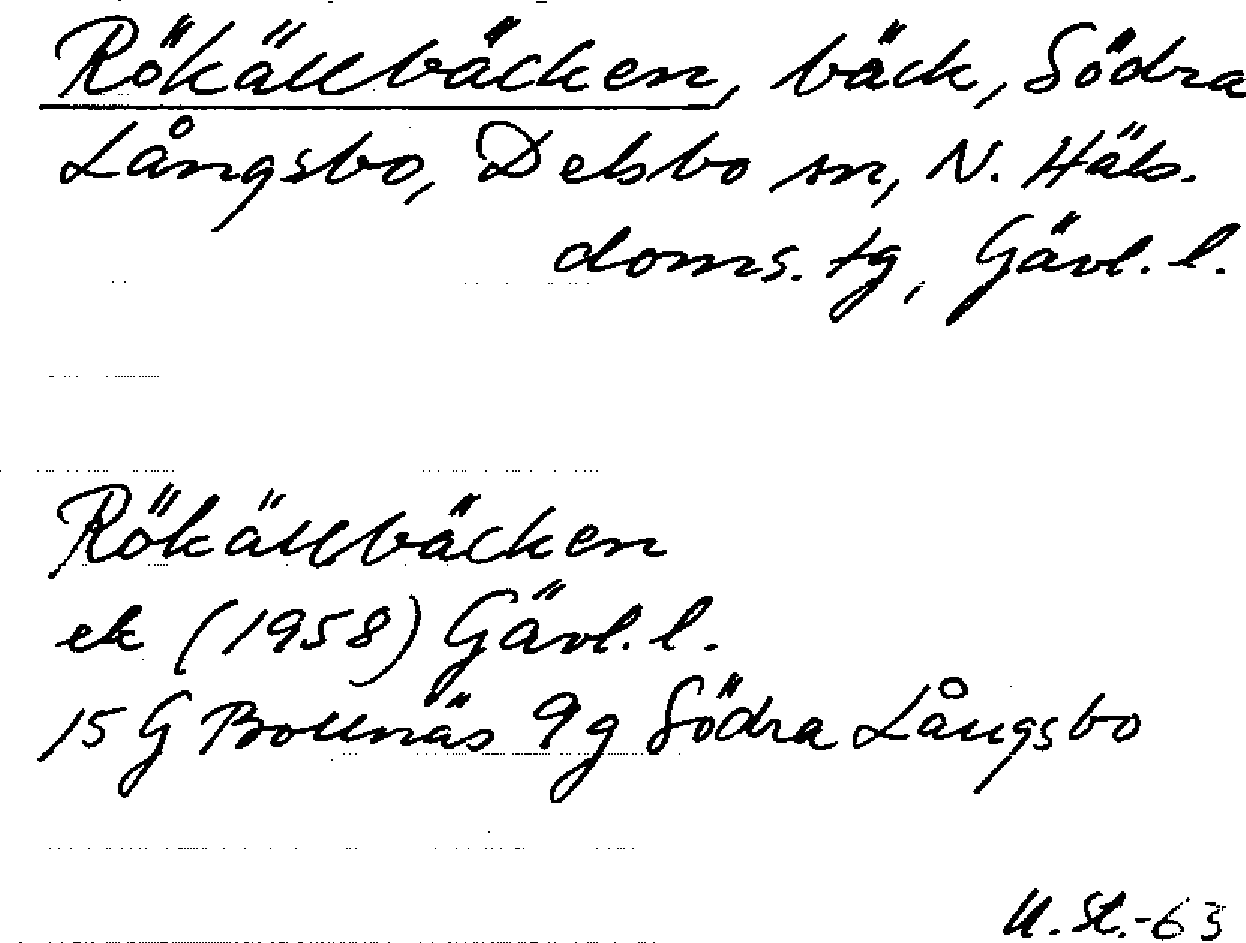 Rökällbäcken, bäck, Södra
Långsbo, Delsbo sn, N. Häls.
doms. tg, Gävl. l.
Rökällbäcken
ek (1958) Gävl. l.
15 G Bollnäs 9g Södra Långsbo
U. St.-63